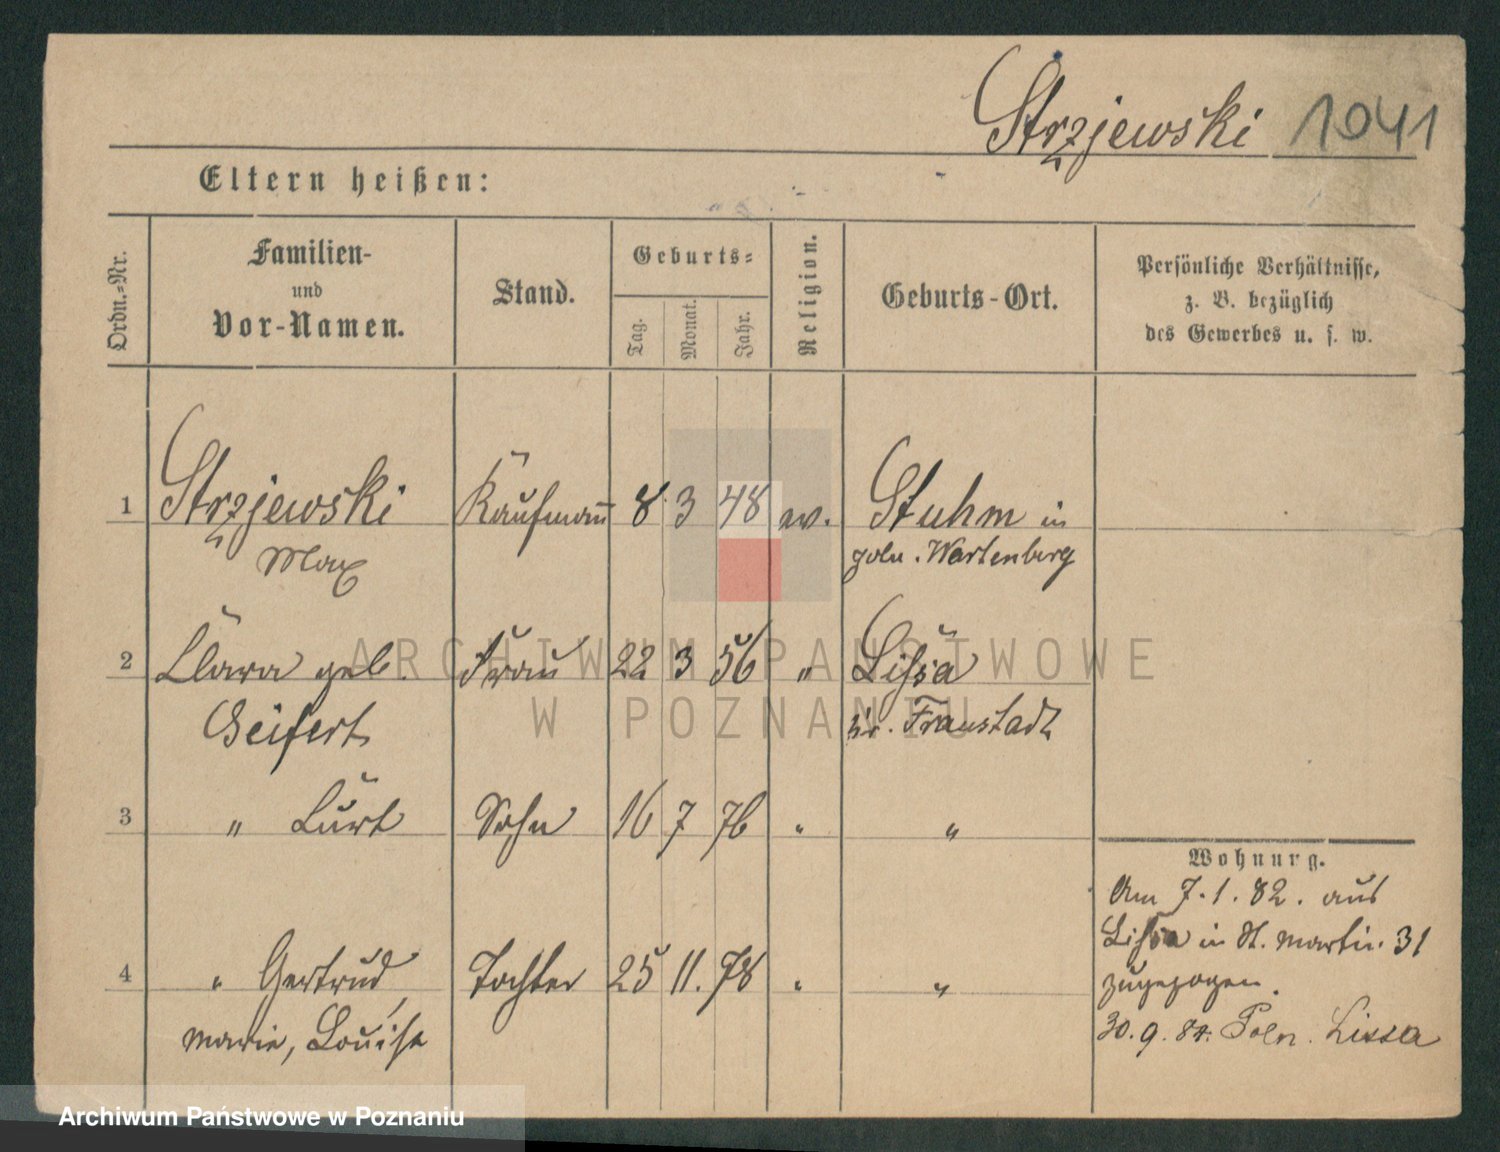 Strzjewski 1041
Eltern heißen:
Ordn.-Nr.
Familien-
und
Vor-Namen.
Stand.
Geburts-
Tag.
Monat.
Jahr.
Religion.
Geburts-Ort.
Persönliche Verhältnisse,
z. B. bezüglich
des Gewerbes u. s. w.
1 Strzjewski Kaufmann 8 3 48 ev. Stuhm in
Max poln. Wartenberg
2 Clara geb. Frau 22 3 56 " Lissa
Seifert Kr. Fraustadt
3 " Curt Sohn 16 7 76 " "
4 " Gertrud, Tochter 25 11. 78 " "
Marie, Louise
Wohnung.
Am 7.1.82. aus
Lissa in St. Martin 31
zugezogen.
30.9.84. Poln. Lissa
ARCHIWUM PAŃSTWOWE
W POZNANIU
Archiwum Państwowe w Poznaniu